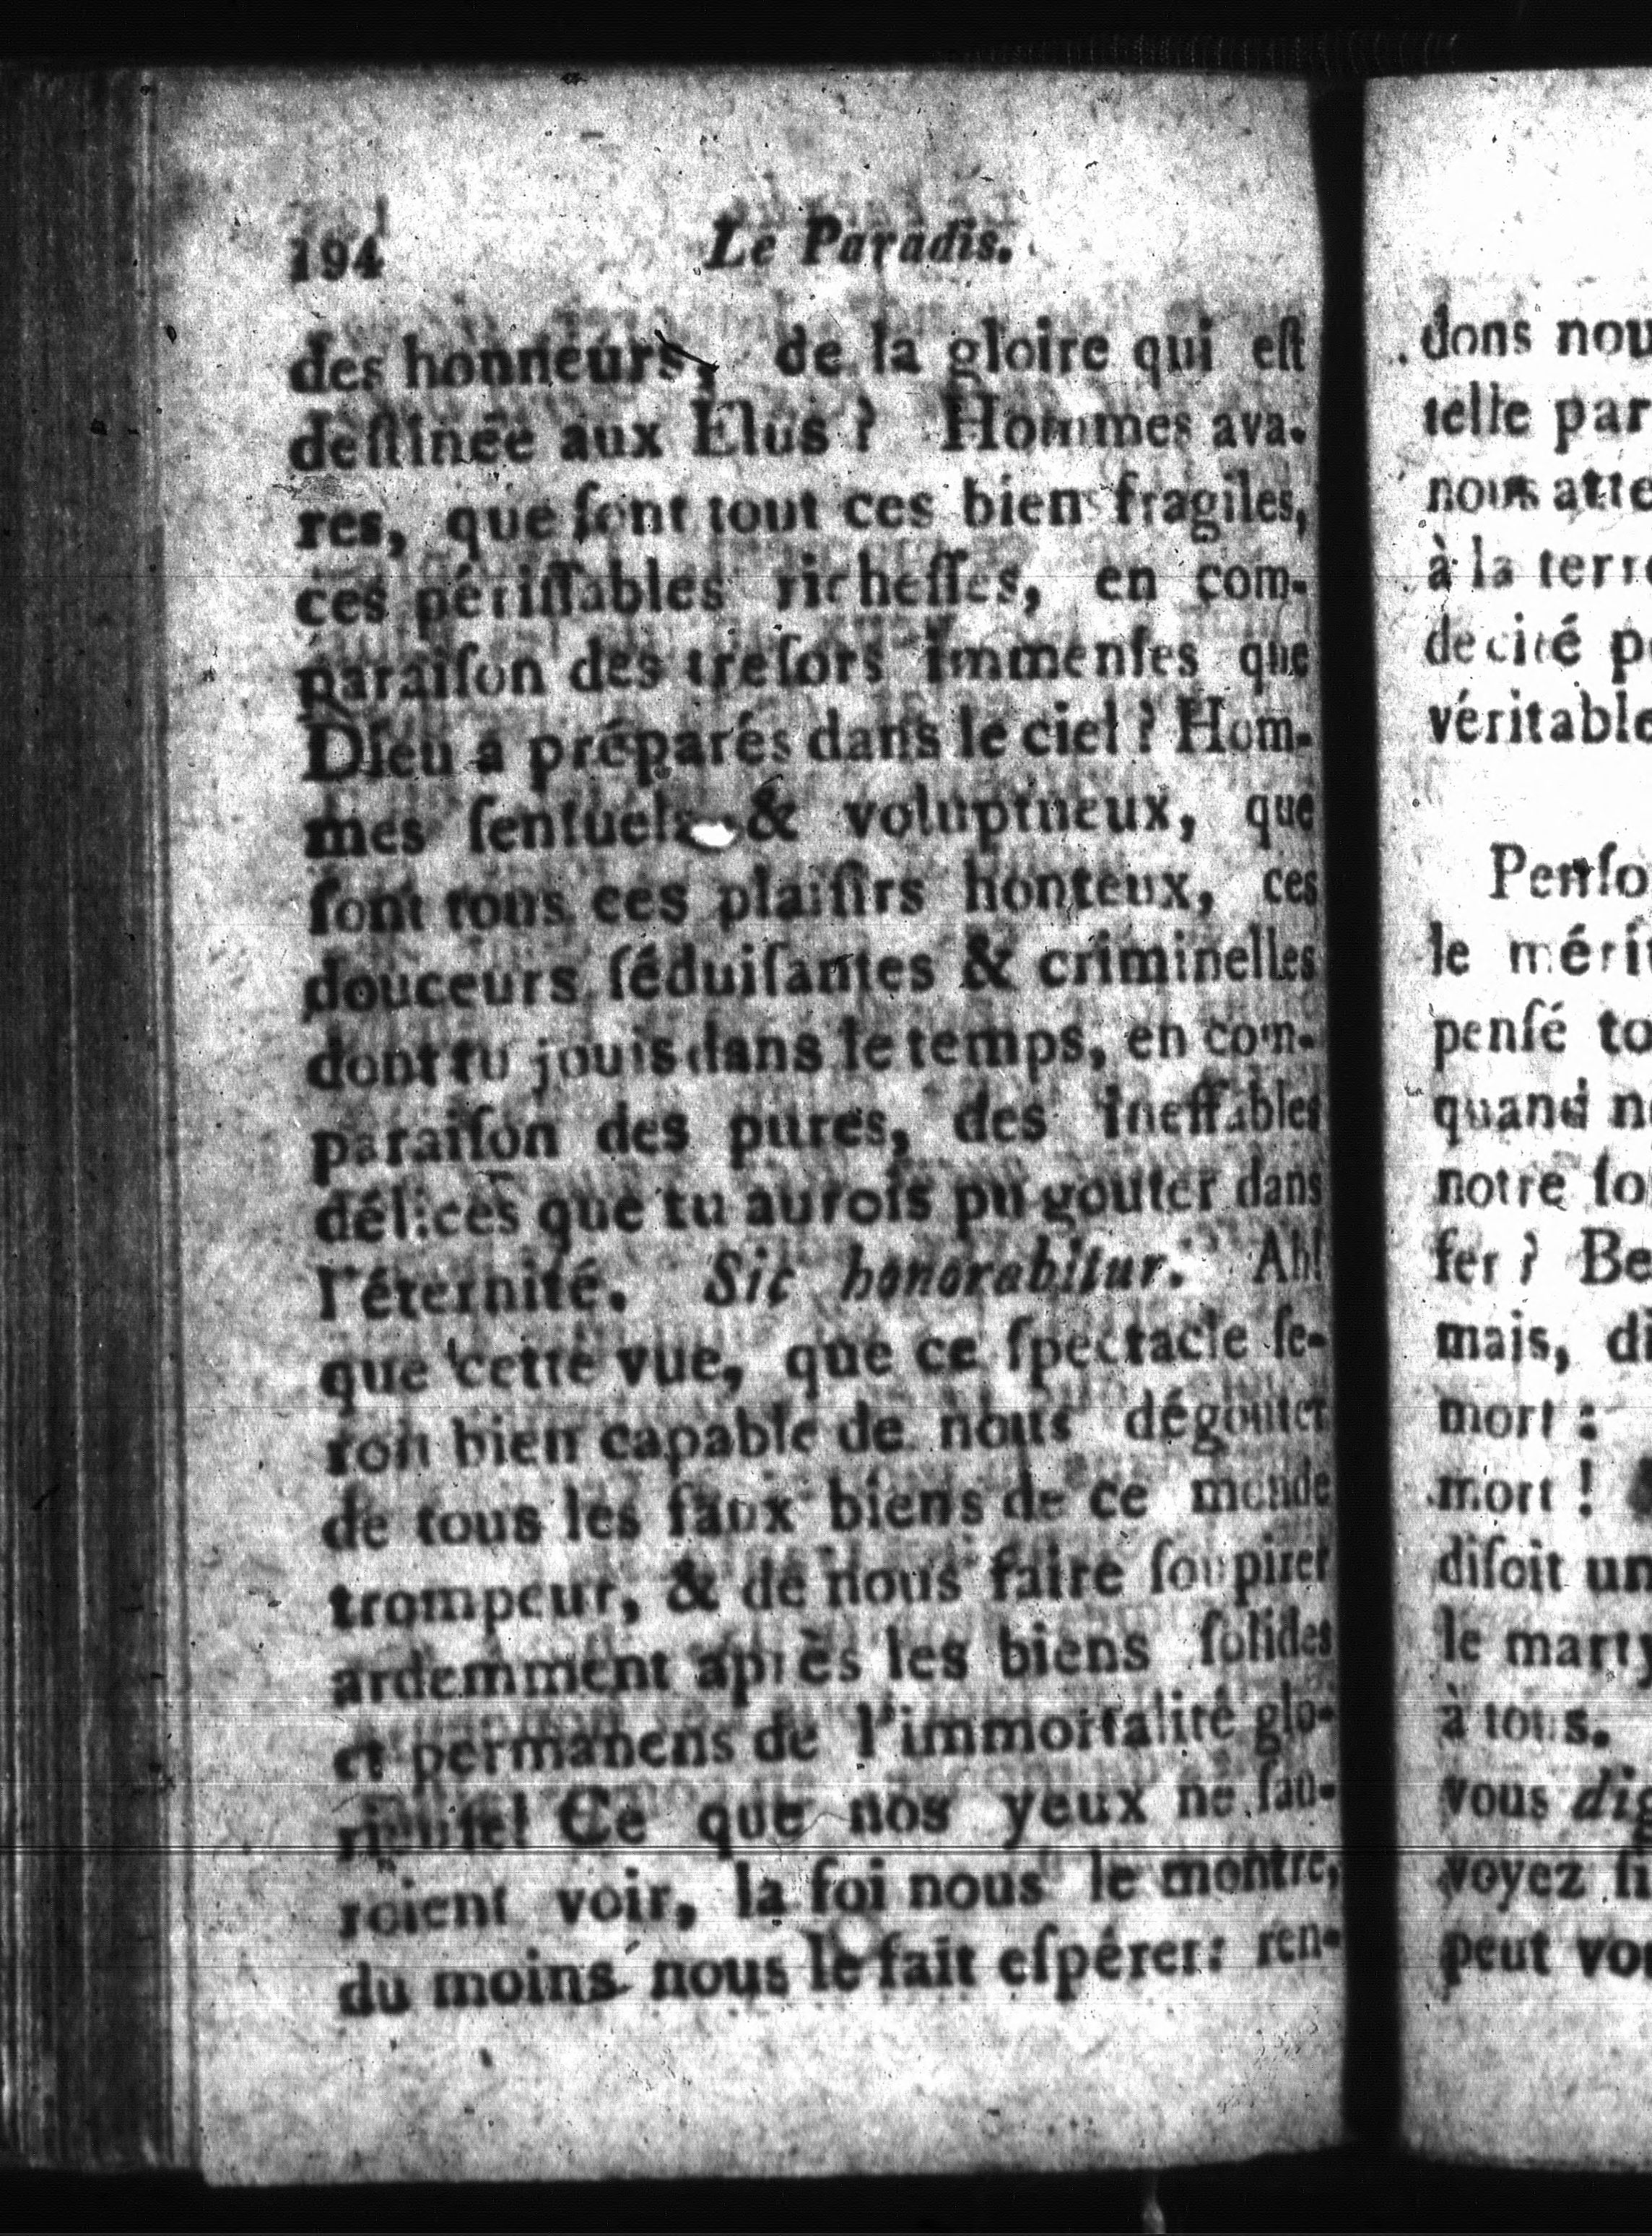 194 Le Paradis.
des honneurs, de la gloire qui eſt
deſtinée aux Elus ? Hommes ava-
res, que ſont tout ces biens fragiles,
ces périſſables richeſſes, en com-
paraiſon des treſors immenſes que
Dieu a préparés dans le ciel ? Hom-
mes ſenſuels & voluptueux, que
ſont tous ces plaiſirs honteux, ces
douceurs ſéduiſantes & criminelles
dont tu jouis dans le temps, en com-
paraiſon des pures, des ineffables
délices que tu aurois pu gouter dans
l'éternité. Sic honorabitur. Ah!
que cette vue, que ce ſpectacle ſe-
roit bien capable de nous dégouter
de tous les faux biens de ce monde
trompeur, & de nous faire ſoupirer
ardemment après les biens ſolides
et permanens de l'immortalité glo-
rieuſe! Ce que nos yeux ne ſau-
roient voir, la foi nous le montre,
du moins nous le fait eſpérer: ren-
dons nou
telle par
nous atte
à la terre
decité p
véritable
Penſo
le méri
penſé to
quand n
notre ſo
fer ? Be
mais, di
mort :
mort !
diſoit un
le marty
à tous.
vous dig
voyez ſi
peut vou